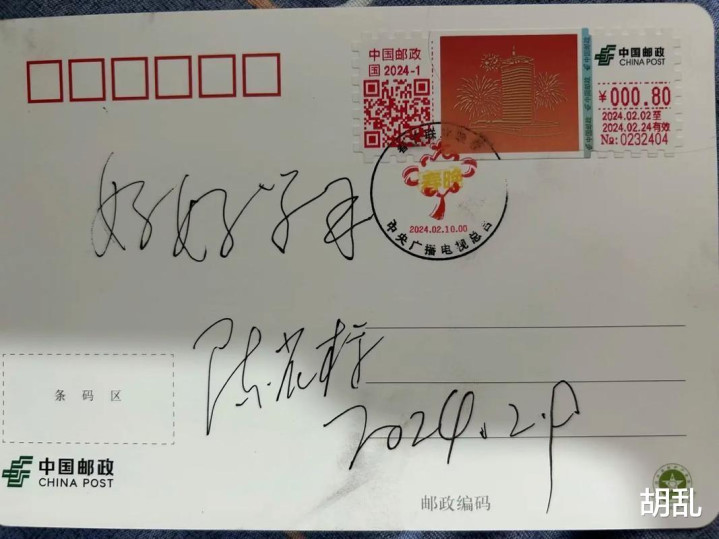 中国邮政
国 2024-1
中国邮政
CHINA POST
¥000.80
2024.02.02至
2024.02.24有效
№:0232404
春晚
2024.02.10.00
中央广播电视总台
好好学习
2024.2.9
条码区
中国邮政
CHINA POST
邮政编码
胡乱